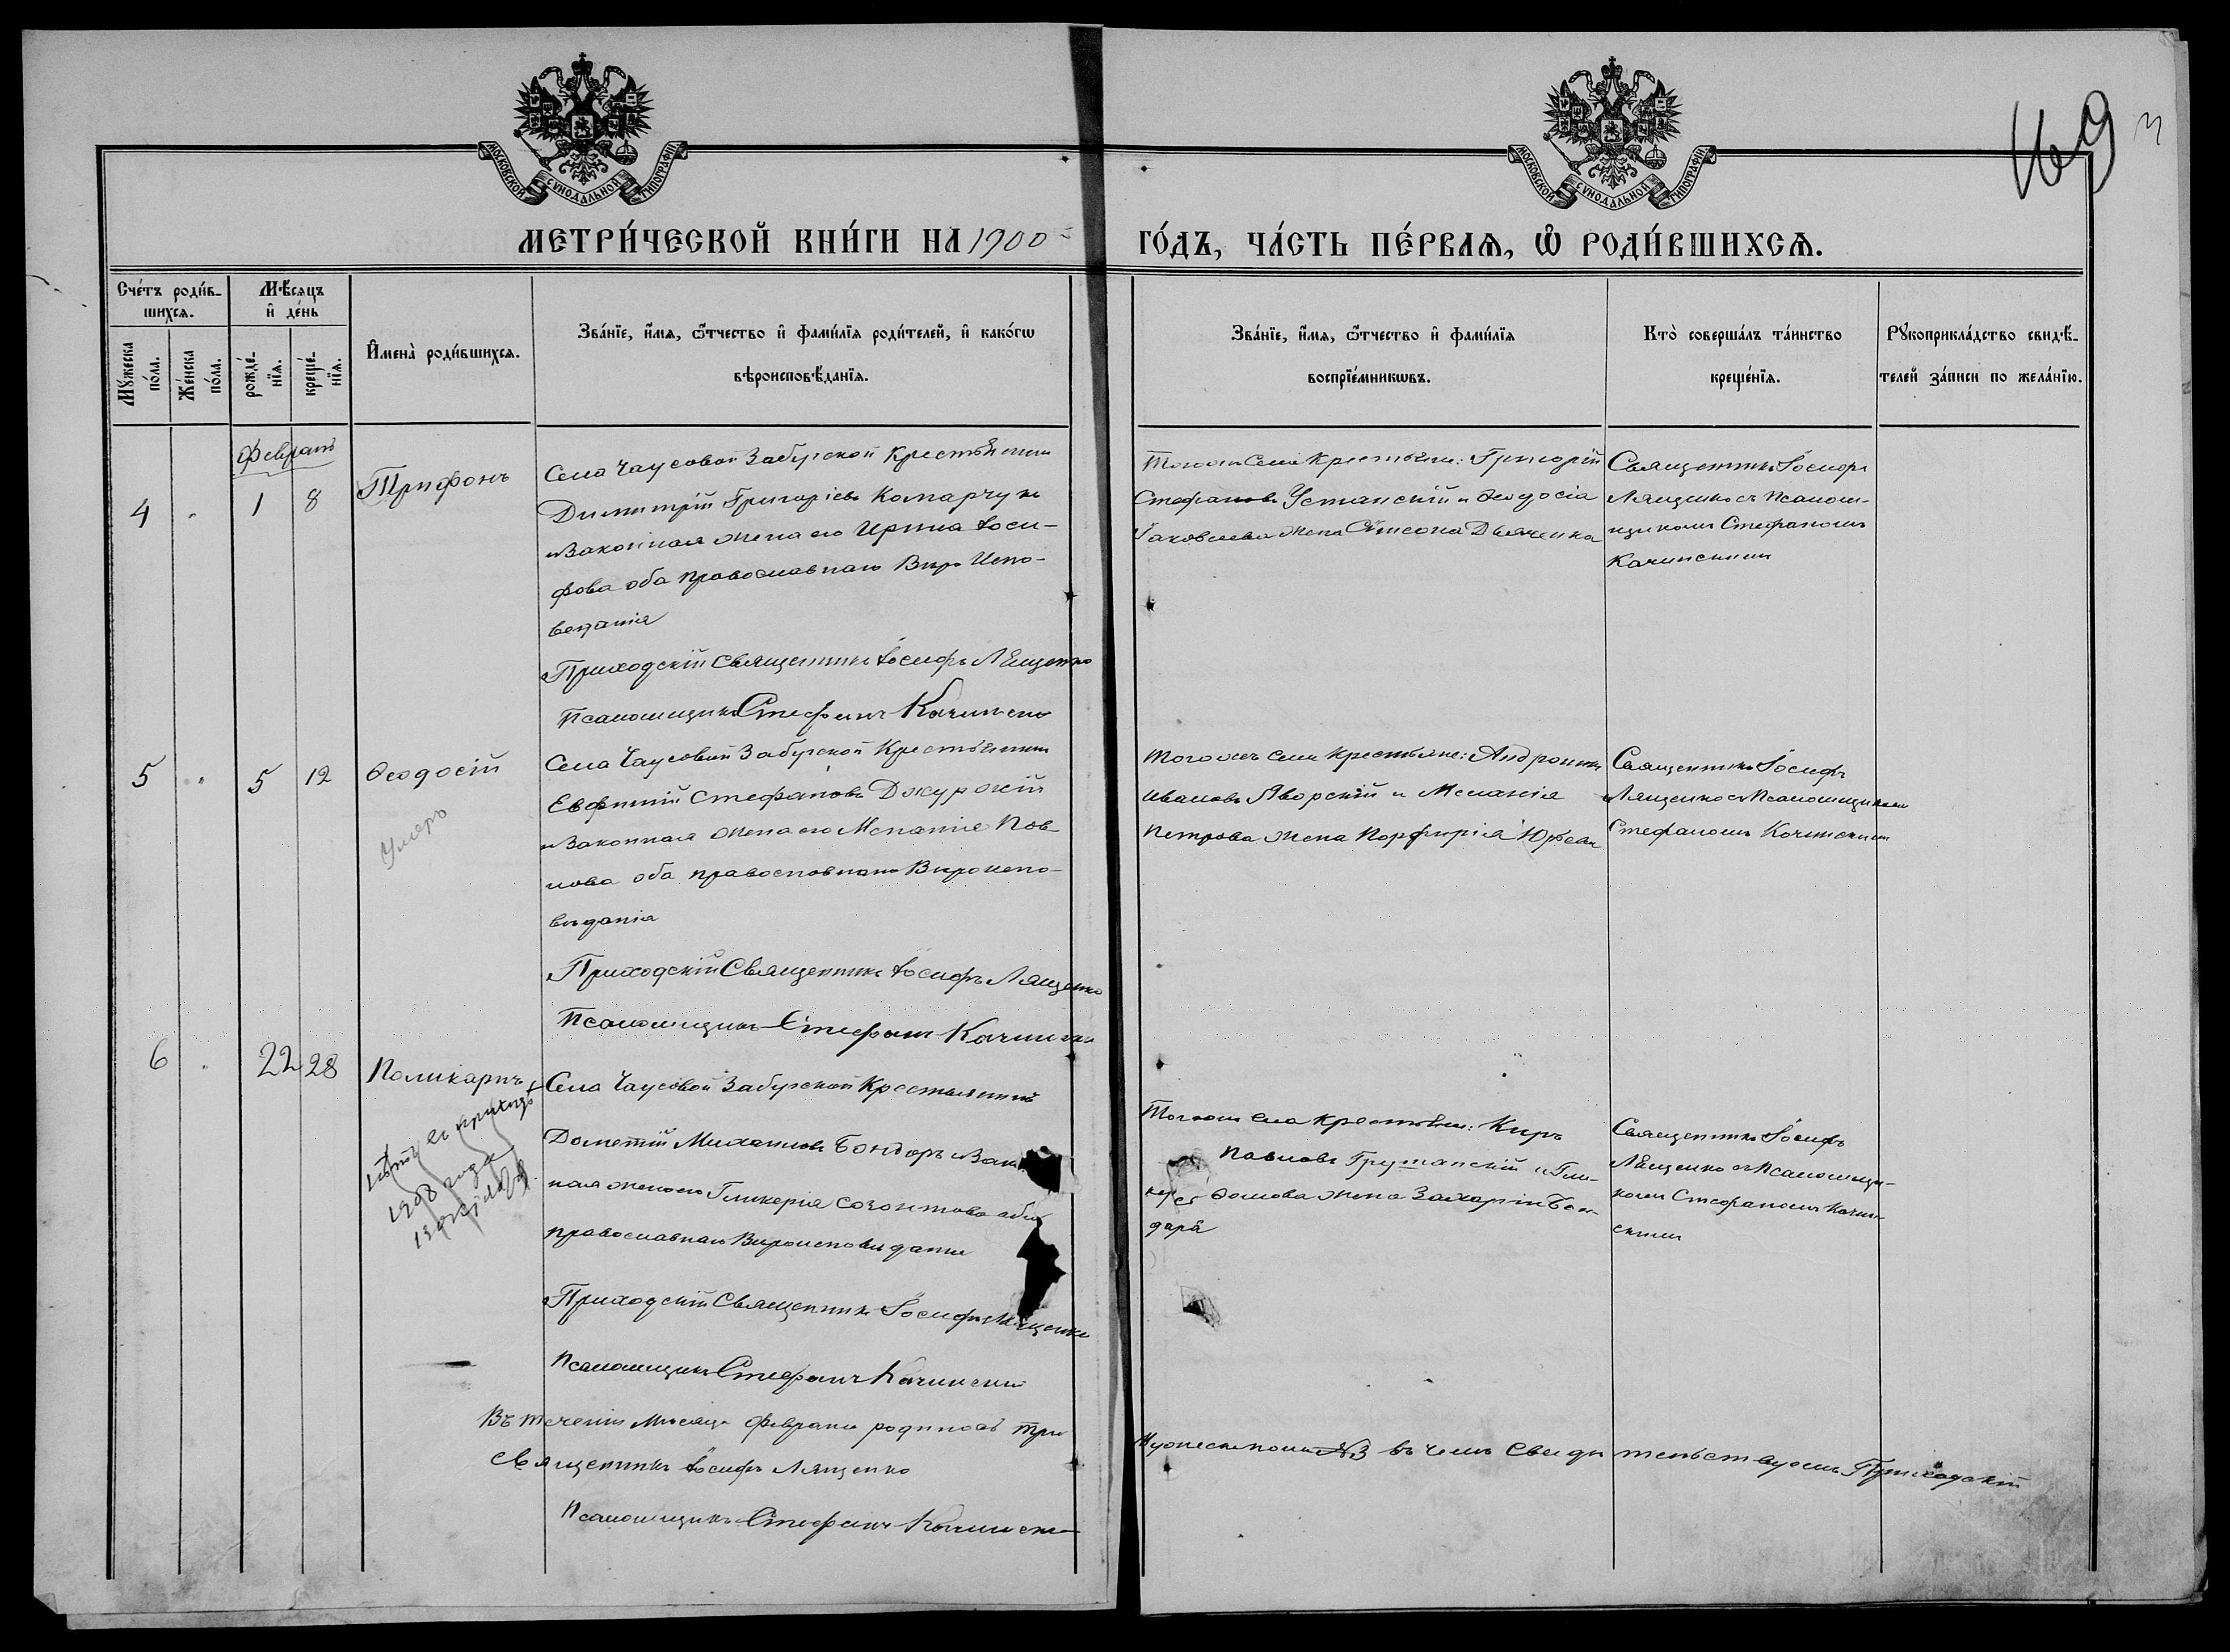 169
МОСКОВСКОЙ СѴНОДАЛЬНОЙ ТИПОГРАФІИ
МОСКОВСКОЙ СѴНОДАЛЬНОЙ ТИПОГРАФІИ
МЕТРИ́ЧЕСКОЙ КНИ́ГИ НА 1900
ГО́ДЪ, ЧА́СТЬ ПЕ́РВАѦ, Ѽ РОДИ́ВШИХСѦ.
Сче́тъ роди́в-
шихсѧ.
Мѣ́сѧцъ
и҆ де́нь
Мꙋ́жеска
по́ла.
Же́нска
по́ла.
рожде́-
нїѧ.
креще́-
нїѧ.
И҆мена̀ роди́вшихсѧ.
Зва́нїе, и҆́мѧ, ѻ҆́тчество и҆ фами́лїѧ роди́телей, и҆ како́гѡ
вѣроисповѣ́данїѧ.
Зва́нїе, и҆́мѧ, ѻ҆́тчество и҆ фами́лїѧ
воспрїе́мникѡвъ.
Кто̀ соверша́лъ та́инство
креще́нїѧ.
Рꙋкоприкла́дство свидѣ́-
телей за́писи по жела́нїю.
Февраль
4 " 1 8
Трифонъ
Села Чаусовой Забугской Крестьянинъ
Димитрій Григоріевъ Комарчукъ
и Законная жена его Ирина Іоси-
фова оба православнаго Вѣро Испо-
веданія
Приходскій Священникъ Іосифъ Лященко
Псаломщикъ Стефанъ Качинскій
Тогоже Села Крестьяне: Григорій
Стефановъ Устянскій и Ѳеодосія
Іаковлева жена Сѵмеона Дьяченка
Священникъ Іосифъ
Лященко съ Псалом-
щикомъ Стефаномъ
Качинскимъ
5 " 5 12
Ѳеодосій
Умеръ
Села Чаусовой Забугской Крестьянинъ
Евфимій Стефановъ Джуржій
и Законная жена его Меланія Пав-
лова оба православнаго Вѣроиспо-
вѣданія
Приходскій Священникъ Іосифъ Лященко
Псаломщикъ Стефанъ Качинскій
Тогожъ села Крестьяне: Андроникъ
Ивановъ Яворскій и Меланія
Петрова жена Порфирія
Священникъ Іосифъ
Лященко съ Псаломщикомъ
Стефаномъ Качинскимъ
6 " 22 28
Поликарпъ
1908 года
Села Чаусовой Забугской Крестьянинъ
Дометій Михаиловъ Бондарь и Закон
ная жена его Гликерія Созонтова оба
православнаго Вѣроисповѣданія
Приходскій Священникъ Іосифъ Лященко
Псаломщикъ Стефанъ Качинскій
Тогоже села Крестьяне: Киръ
Павловъ Грушанскій и Гли-
керія жена Захарія Бон-
даря
Священникъ Іосифъ
Лященко съ Псаломщи-
комъ Стефаномъ Качин-
скимъ
Въ теченіи Мѣсяца Февраля родилось три
Мужеска пола №3 въ чемъ Свидѣтельствуемъ Приходскій
Священникъ Іосифъ Лященко
Псаломщикъ Стефанъ Качинскій